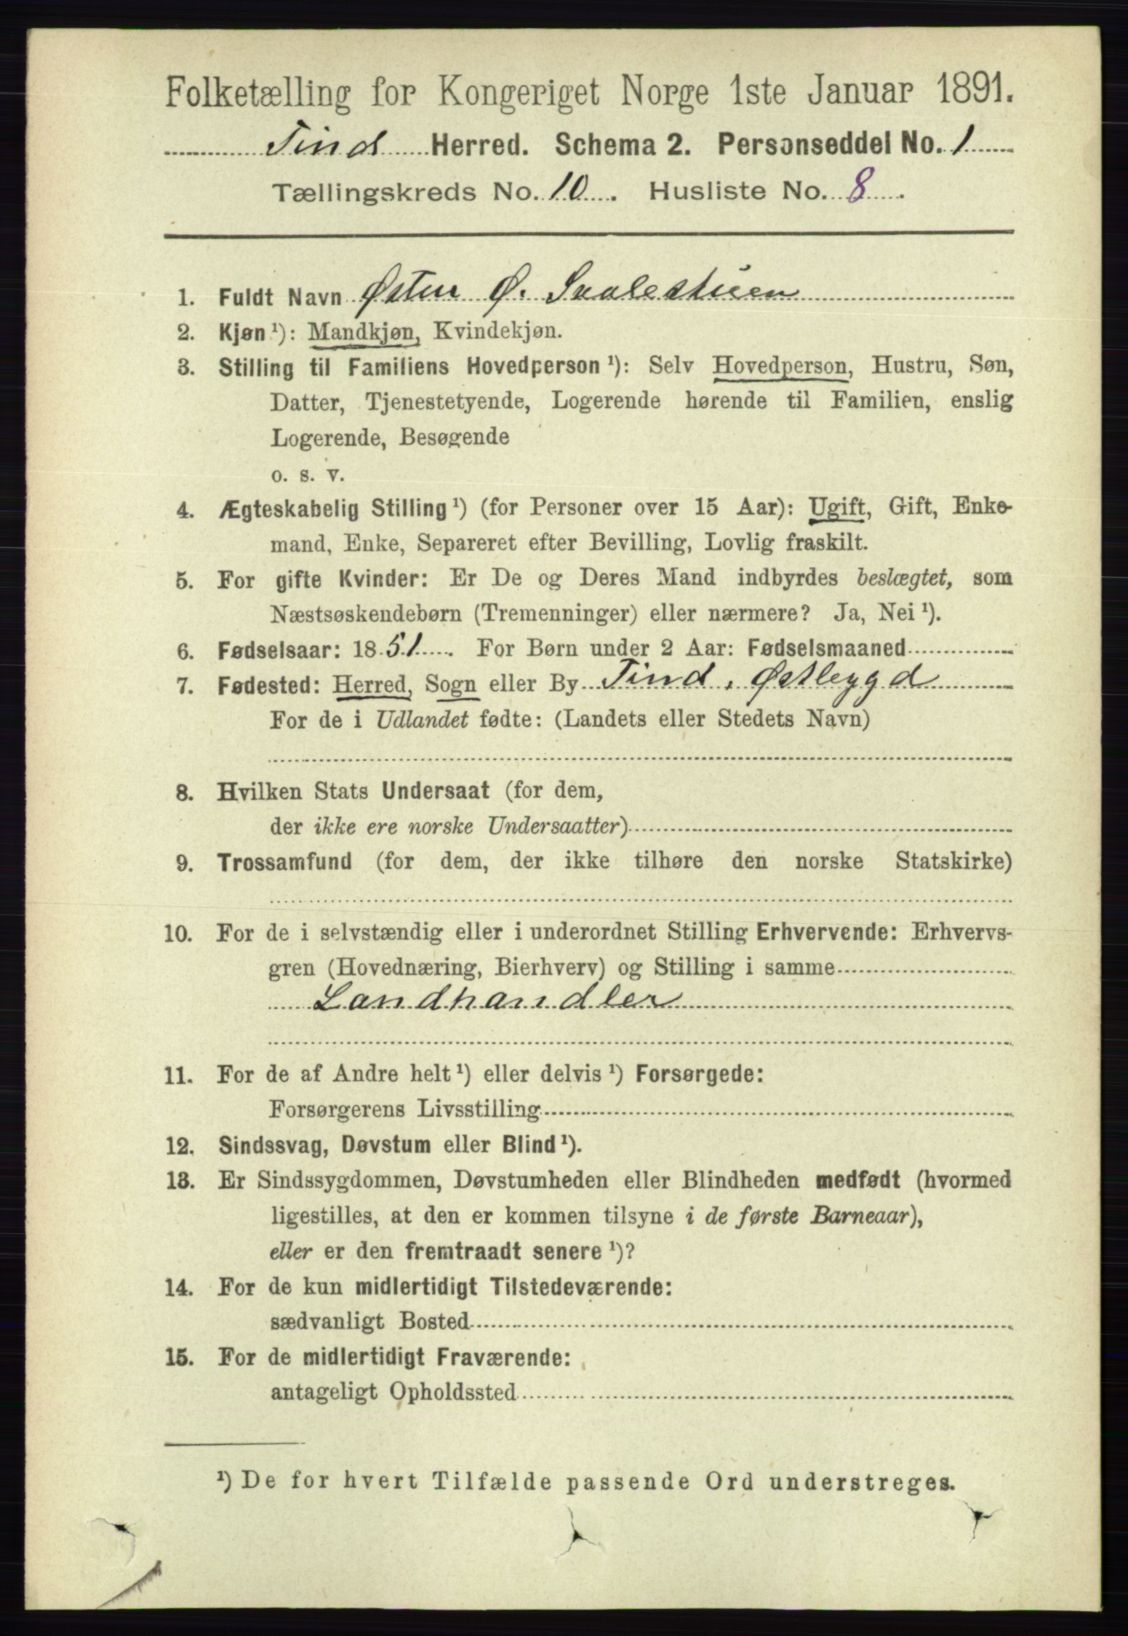 Folketælling for Kongeriget Norge 1ste Januar 1891.
Tind Herred. Schema 2. Personseddel No. 1
Tællingskreds No. 10. Husliste No. 8.
1. Fuldt Navn Østen Ø. Svalestuen
2. Kjøn ¹): Mandkjøn, Kvindekjøn.
3. Stilling til Familiens Hovedperson ¹): Selv Hovedperson, Hustru, Søn,
Datter, Tjenestetyende, Logerende hørende til Familien, enslig
Logerende, Besøgende
o. s. v.
4. Ægteskabelig Stilling ¹) (for Personer over 15 Aar): Ugift, Gift, Enke-
mand, Enke, Separeret efter Bevilling, Lovlig fraskilt.
5. For gifte Kvinder: Er De og Deres Mand indbyrdes beslægtet, som
Næstsøskendebørn (Tremenninger) eller nærmere? Ja, Nei ¹).
6. Fødselsaar: 1851. For Børn under 2 Aar: Fødselsmaaned
7. Fødested: Herred, Sogn eller By Tind, Østbygd
For de i Udlandet fødte: (Landets eller Stedets Navn)
8. Hvilken Stats Undersaat (for dem,
der ikke ere norske Undersaatter)
9. Trossamfund (for dem, der ikke tilhøre den norske Statskirke)
10. For de i selvstændig eller i underordnet Stilling Erhvervende: Erhvervs-
gren (Hovednæring, Bierhverv) og Stilling i samme
Landhandler
11. For de af Andre helt ¹) eller delvis ¹) Forsørgede:
Forsørgerens Livsstilling
12. Sindssvag, Døvstum eller Blind ¹).
13. Er Sindssygdommen, Døvstumheden eller Blindheden medfødt (hvormed
ligestilles, at den er kommen tilsyne i de første Barneaar),
eller er den fremtraadt senere ¹)?
14. For de kun midlertidigt Tilstedeværende:
sædvanligt Bosted
15. For de midlertidigt Fraværende:
antageligt Opholdssted
¹) De for hvert Tilfælde passende Ord understreges.